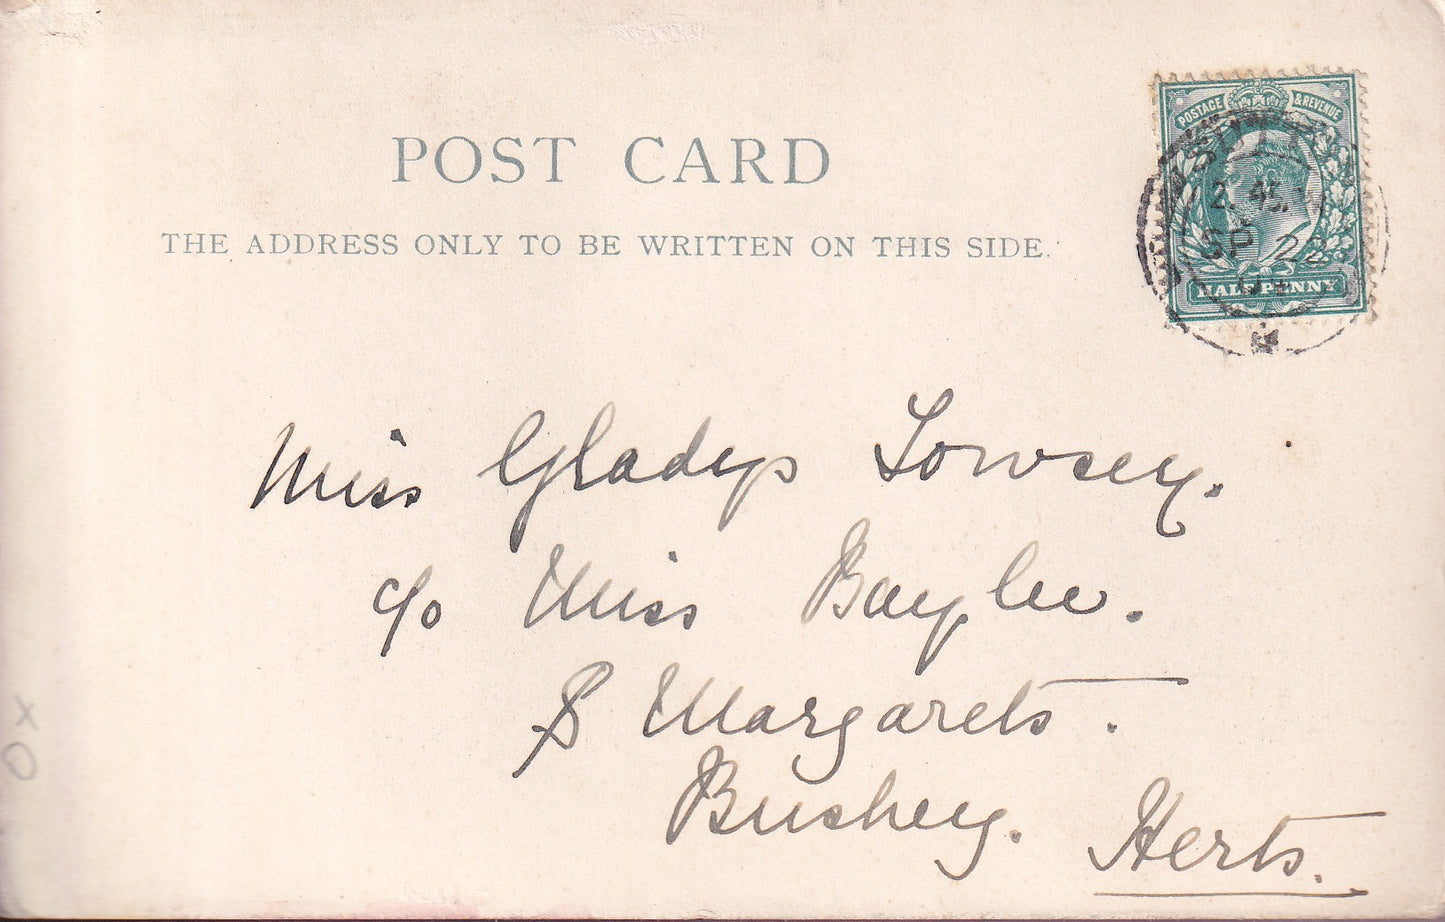 POST CARD
THE ADDRESS ONLY TO BE WRITTEN ON THIS SIDE.
POSTAGE & REVENUE
2. 45.
SP 22
04
HALFPENNY
Miss Gladys Lowsey.
c/o Miss Baylee.
S Margarets.
Bushey. Herts.
X O